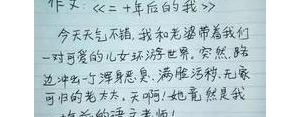 作文:《二十年后的我》
今天天气不错,我和老婆带着我们
一对可爱的儿女环游世界。突然,路
边冲出一个浑身恶臭、满脸污秽、无家
可归的老太太。天啊!她竟然是我
的语文老师!